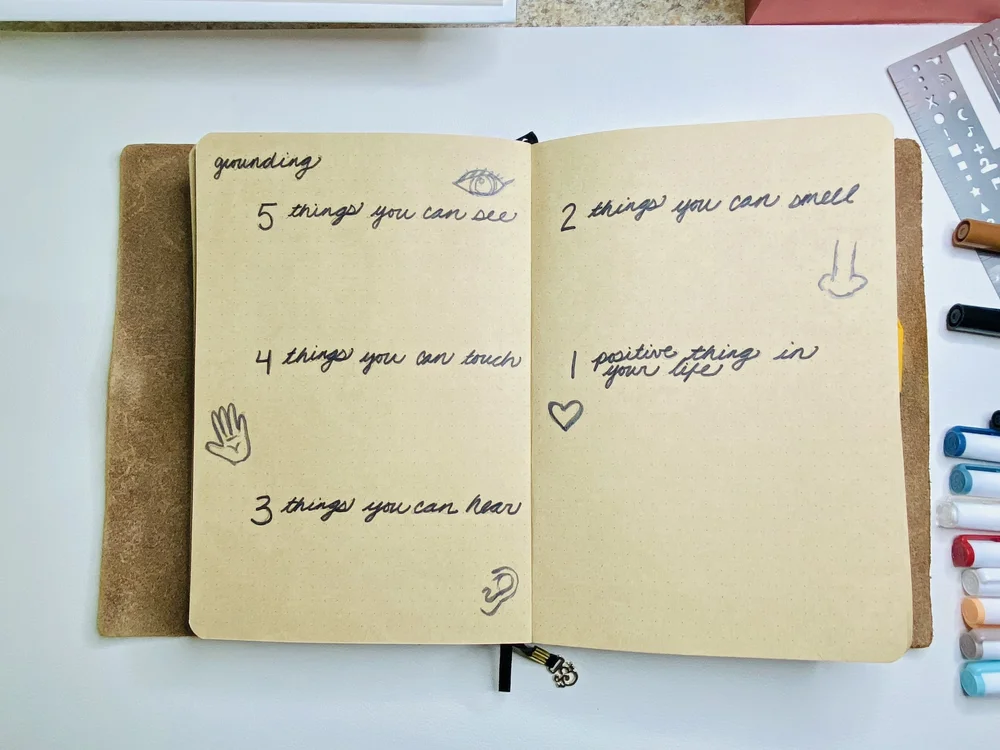 grounding
5 things you can see
4 things you can touch
3 things you can hear
2 things you can smell
1 positive thing in
your life